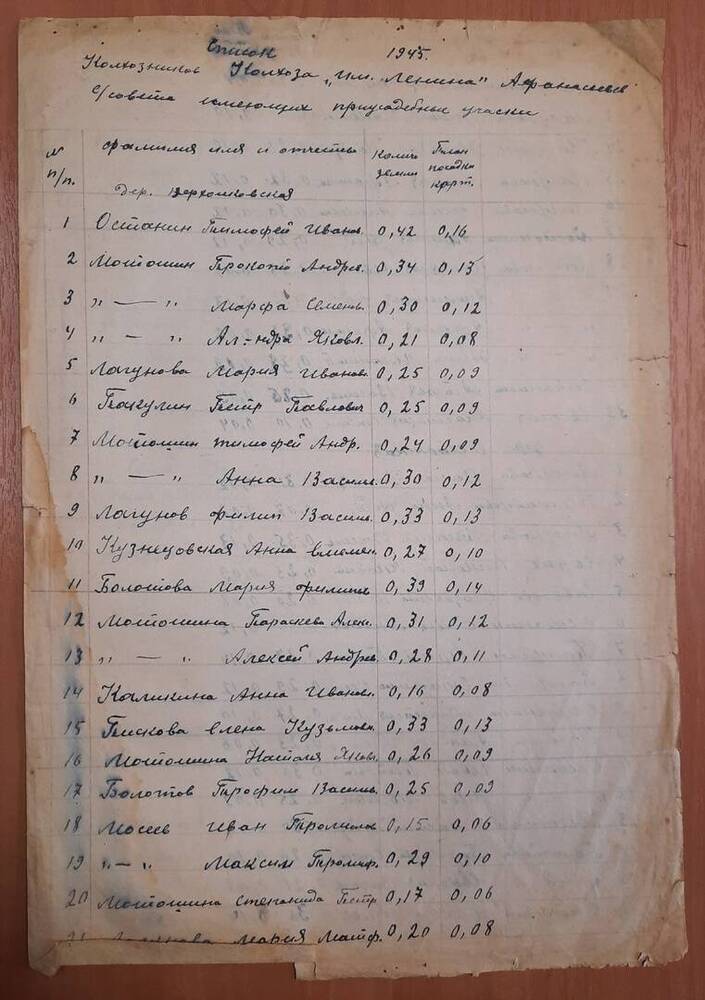 Список 1945.
Колхозников Колхоза "им. Ленина" Афанасьевс
с/совета имеющих приусадебные участки
N п/п. фамилия имя и отчество Колич. земли План посадки карт.
дер. Верхопковская
1 Останин Тимофей Иванов. 0,42 0,16
2 Мотошин Прокопий Андрев. 0,34 0,13
3 " — " Марфа Семень. 0,30 0,12
4 " — " Ал-ндра Яковл. 0,21 0,08
5 Лагунова Мария Иванов. 0,25 0,09
6 Пакулин Петр Павлович 0,25 0,09
7 Мотошин тимофей Андр. 0,24 0,09
8 " — " Анна Васильe. 0,30 0,12
9 Лагунов филип Василь. 0,33 0,13
10 Кузнецовская Анна емелен. 0,27 0,10
11 Болотова Мария филипь 0,39 0,14
12 Мотошина Параскева Алек. 0,31 0,12
13 " — " Алексей Андрев. 0,28 0,11
14 Каликина Анна Иванов. 0,16 0,08
15 Пискова елена Кузьмов. 0,33 0,13
16 Мотошина Наталя Яков. 0,26 0,09
17 Болотов Трофим Василь. 0,25 0,09
18 Мосеев Иван 0,15 0,06
19 " — " Максим 0,29 0,10
20 Мотошина степанида Петр 0,17 0,06
21 Мария Матф. 0,20 0,08